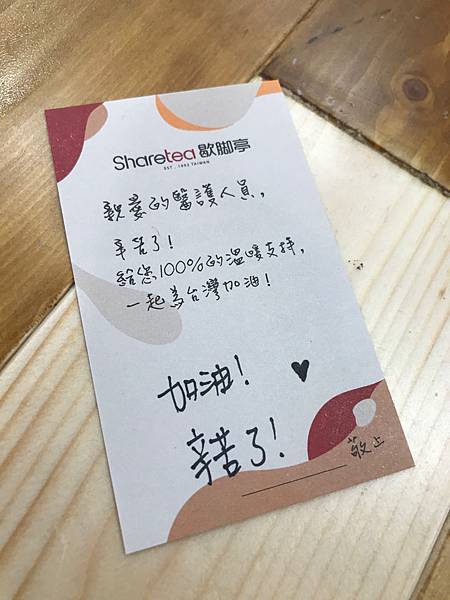 Sharetea 歇腳亭
EST. 1992 TAIWAN
親愛的醫護人員,
辛苦了!
給您100%的溫暖支持,
一起為台灣加油!
加油! ♥
辛苦了!
敬上